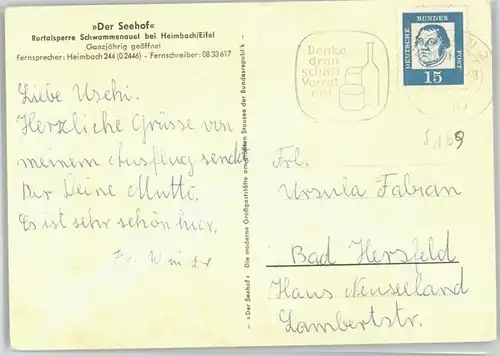 »Der Seehof«
Rurtalsperre Schwammenauel bei Heimbach/Eifel
Ganzjährig geöffnet
Fernsprecher: Heimbach 244 (02446) - Fernschreiber: 0833617
Liebe Uschi.
Herzliche Grüsse von
meinem Ausflug sendet
Dir Deine Mutti.
Es ist sehr schön hier.
Fr. Winter
»Der Seehof« Die moderne Großgaststätte am größten Stausee der Bundesrepublik
Denke
dran
schaff
Vorrat
an!
DEUTSCHE BUNDESPOST
15
Frl.
Ursula Fabian
Bad Hersfeld
Haus Neuseeland
Lambertstr.